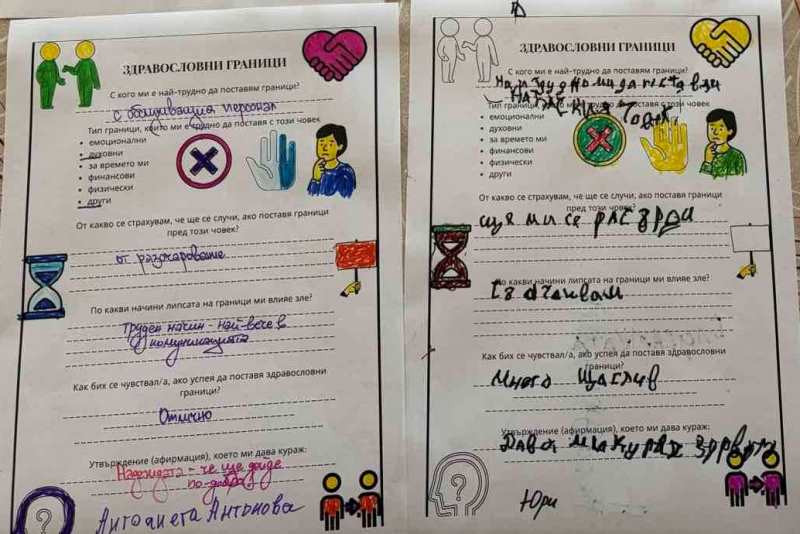 ЗДРАВОСЛОВНИ ГРАНИЦИ
С кого ми е най-трудно да поставям граници?
с обслужващия персонал
Тип граници, които ми е трудно да поставя с този човек
емоционални
духовни
за времето ми
финансови
физически
други
От какво се страхувам, че ще се случи, ако поставя граници
пред този човек?
от разочарование
По какви начини липсата на граници ми влияе зле?
труден начин - най-вече в
комуникацията
Как бих се чувствал/а, ако успея да поставя здравословни
граници?
Отлично
Утвърждение (афирмация), което ми дава кураж:
Надеждата - че ще дойде
по-добра
Антоанета Антонова
ЗДРАВОСЛОВНИ ГРАНИЦИ
С кого ми е най-трудно да поставям граници?
Тип граници, които ми е трудно да поставя с този човек
емоционални
духовни
за времето ми
финансови
физически
други
От какво се страхувам, че ще се случи, ако поставя граници
пред този човек?
ще ми се
По какви начини липсата на граници ми влияе зле?
Как бих се чувствал/а, ако успея да поставя здравословни
граници?
Много щаслив
Утвърждение (афирмация), което ми дава кураж:
Юри